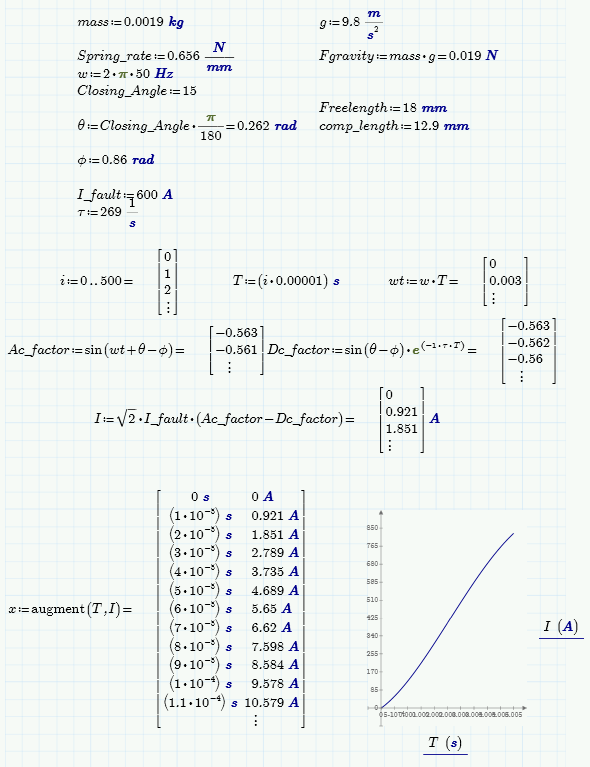 mass:=0.0019 kg g:=9.8 m/s²
Spring_rate:=0.656 N/mm Fgravity:=mass·g=0.019 N
w:=2·π·50 Hz
Closing_Angle:=15
Freelength:=18 mm
θ:=Closing_Angle·π/180=0.262 rad comp_length:=12.9 mm
ϕ:=0.86 rad
I_fault:=600 A
τ:=269 1/s
i:=0..500= [0 1 2 ⋮] T:=(i·0.00001) s wt:=w·T= [0 0.003 ⋮]
Ac_factor:=sin(wt+θ−ϕ)= [−0.563 −0.561 ⋮] Dc_factor:=sin(θ−ϕ)·e^(−1·τ·T)= [−0.563 −0.562 −0.56 ⋮]
I:=√2·I_fault·(Ac_factor−Dc_factor)= [0 0.921 1.851 ⋮] A
x:=augment(T,I)=
0 s 0 A
(1·10⁻⁵) s 0.921 A
(2·10⁻⁵) s 1.851 A
(3·10⁻⁵) s 2.789 A
(4·10⁻⁵) s 3.735 A
(5·10⁻⁵) s 4.689 A
(6·10⁻⁵) s 5.65 A
(7·10⁻⁵) s 6.62 A
(8·10⁻⁵) s 7.598 A
(9·10⁻⁵) s 8.584 A
(1·10⁻⁴) s 9.578 A
(1.1·10⁻⁴) s 10.579 A
⋮
850
765
680
595
510
425
340
255
170
85
0
I (A)
T (s)